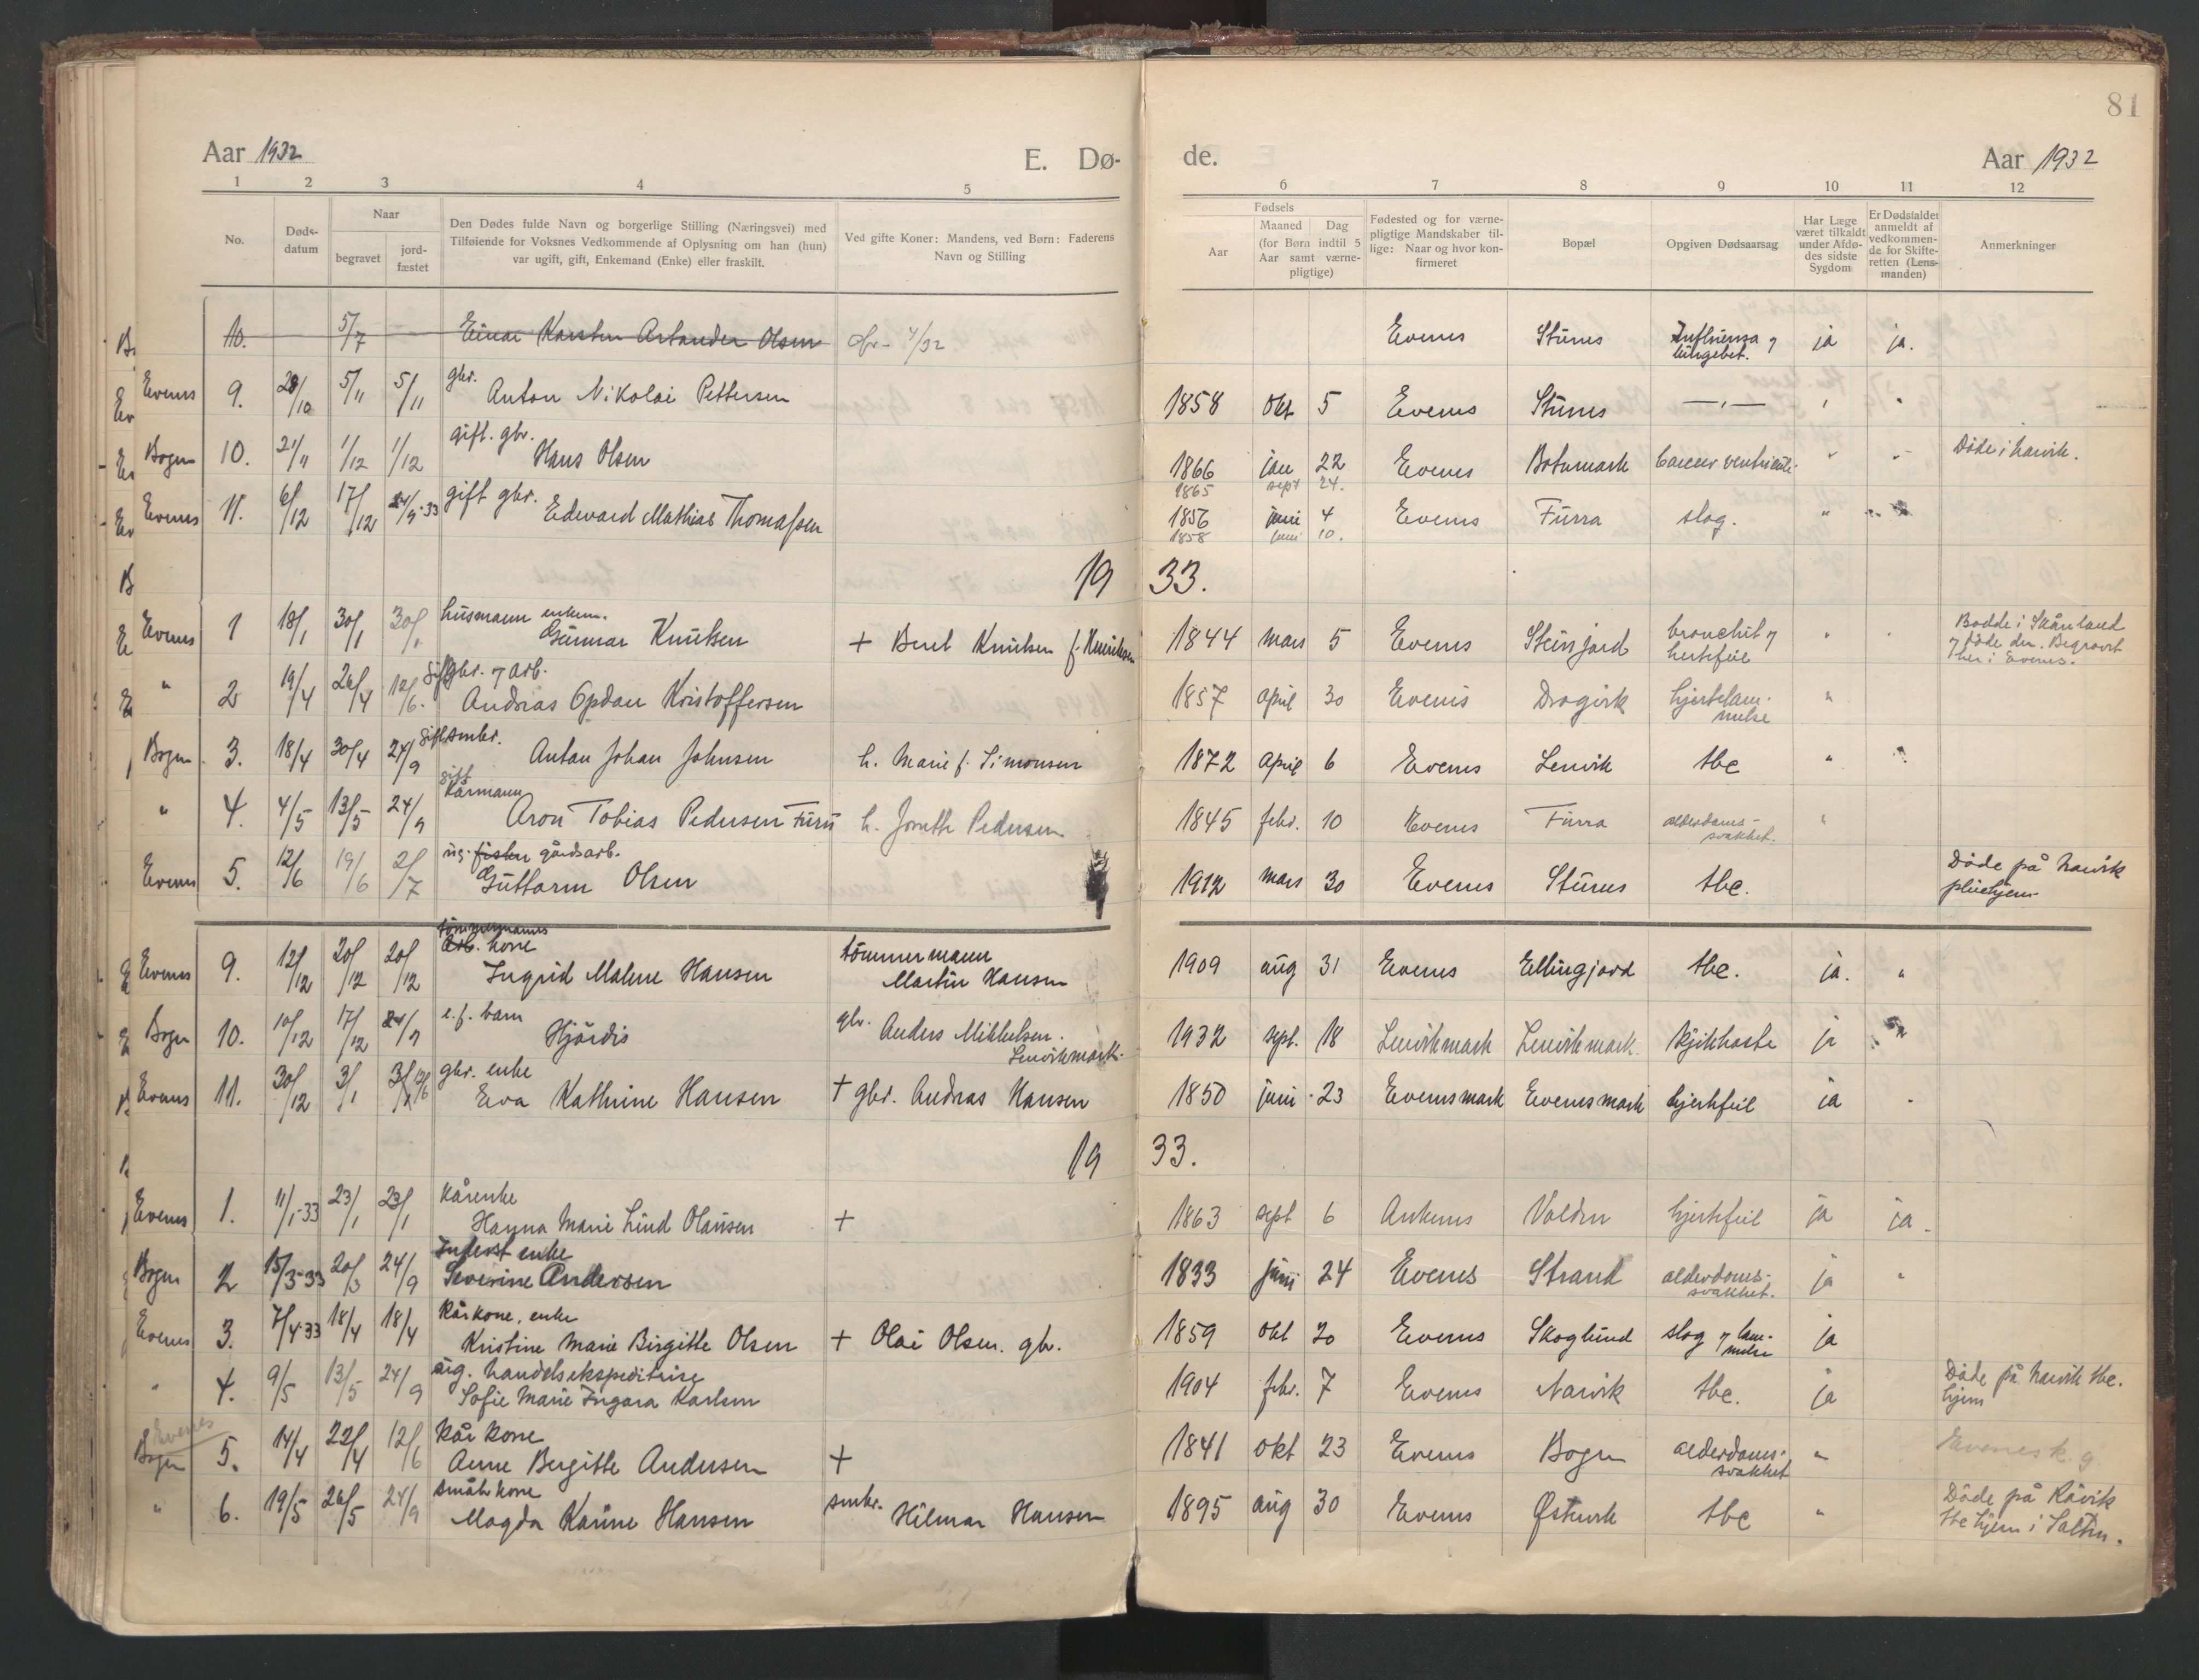 81
Aar 1932 E. Dø- de. Aar 1932
1 2 3 4 5 6 7 8 9 10 11 12
No.
Døds-
datum
Naar
begravet
jord-
fæstet
Den Dødes fulde Navn og borgerlige Stilling (Næringsvei) med
Tilføiende for Voksnes Vedkommende af Oplysning om han (hun)
var ugift, gift, Enkemand (Enke) eller fraskilt.
Ved gifte Koner: Mandens, ved Børn: Faderens
Navn og Stilling
Fødsels
Aar
Maaned Dag
(for Børn indtil 5
Aar samt værne-
pligtige)
Fødested og for værne-
pligtige Mandskaber til-
lige: Naar og hvor kon-
firmeret
Bopæl
Opgiven Dødsaarsag
Har Læge
været tilkaldt
under Afdø-
des sidste
Sygdom
Er Dødsfaldet
anmeldt af
vedkommen-
de for Skifte-
retten (Lens-
manden)
Anmerkninger
10. 5/7 Einar Karsten Artander Olsen ofr. 4/32 Evenes Stunes Influensa og lungebet. ja ja.
gbr.
Evenes 9. 28/10 5/11 5/11 Anton Nikolai Pettersen 1858 okt 5 Evenes Stunes — " — " "
gift. gbr.
Bogen 10. 21/11 1/12 1/12 Hans Olsen 1866 jan 22 Evenes Botnmark cancer ventriculi. " " Døde i Narvik.
1865 sept 24.
gift gbr.
Evenes 11. 6/12 17/12 24/9-33 Edevard Mathias Thomassen 1856 juni 4 Evenes Furra slag. " "
1858 juni 10.
1933.
husmann enkem.
Evenes 1 18/1 30/1 30/1 Gunnar Knutsen + Beret Knutsen f. Henriksen 1844 mars 5 Evenes Steinsjord bronchit og hertefeil " " Bodde i Skånland
og døde der. Begravet
her i Evenes.
gift gbr. og arb.
" 2 19/4 26/4 12/6. Andreas Opdan Kristoffersen 1857 april 30 Evenes Dragvik hjertelam-
melse "
gift småbr.
Bogen 3. 18/4 30/4 24/9 Anton Johan Johnsen h. Marie f. Simonsen 1872 april 6 Evenes Lenvik tbc "
gift
Kårmann
" 4. 4/5 13/5 24/9 Aron Tobias Pedersen Furu h. Joreth Pedersen 1845 febr. 10 Evenes Furra alderdoms-
svakhet. "
ug. fisker gårdsarb.
Evenes 5. 12/6 19/6 2/7 Guttorm Olsen 1912 mars 30 Evenes Stunes tbc. Døde på Narvik
pleiehjem
tømmermanns
arb. kone
Evenes 9. 12/12 20/12 20/12 Ingrid Malene Hansen tømmermann
Martin Hansen 1909 aug 31 Evenes Ellingjord tbc. ja. "
e.f. barn
Bogen 10. 10/12 17/12 24/9 Hjørdis gbr. Anders Mikkelsen.
Lenvikmark. 1932 sept. 18 Lenvikmark Lenvikmark. Kjikhoste ja "
gbr. enke
Evenes 11. 30/12 3/1 3/1 12/6 Eva Kathrine Hansen + gbr. Andreas Hansen 1850 juni 23 Evenesmark Evenesmark hjertefeil ja "
1933.
Kårenke
Evenes 1. 11/1-33 23/1 23/1 Hanna Marie Lind Olausen + 1863 sept 6 Ankenes Volden hjertefeil ja ja.
Inderst enke
Bogen 2 15/3-33 20/3 24/9 Severine Andersen 1833 juni 24 Evenes Strand alderdoms-
svakhet. ja "
Kårkone, enke
Evenes 3. 7/4-33 18/4 18/4 Kristine Marie Birgitte Olsen + Olai Olsen. gbr. 1859 okt 20 Evenes Skoglund slag og lam-
melse ja
ug. handelsekspeditrise
" 4. 9/5 13/5 24/9 Sofie Marie Ingara Karlsen 1904 febr. 7 Evenes Narvik tbc. ja Døde på Narvik tbc.
hjem
Evenes
Kårkone
Bogen 5. 14/4 22/4 12/6 Anne Bergitte Andersen + 1841 okt 23 Evenes Bogen alderdoms-
svakhet " Evenes k. g
småbr kone
" 6. 19/5 26/5 24/9 Magda Karine Hansen småbr. Hilmar Hansen 1895 aug 30 Evenes Østervik tbc " Døde på Råvik
tbc hjem i Salten.